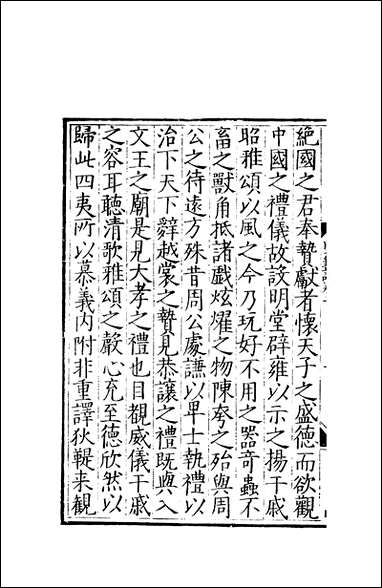 絶國之君奉贄獻者懷天子之盛德而欲觀
中國之禮儀故設明堂辟雍以示之揚干戚
昭雅頌以風之今乃玩好不用之器奇蟲不
畜之獸角抵諸戲炫燿之物陳夸之殆與周
公之待遠方殊昔周公處謙以卑士執禮以
治下天下辭越裳之贄見恭讓之禮既與入
文王之廟是見大孝之禮也目覩威儀干戚
之容耳聽清歌雅頌之聲心充至德欣然以
歸此四夷所以慕義內附非重譯狄鞮來觀